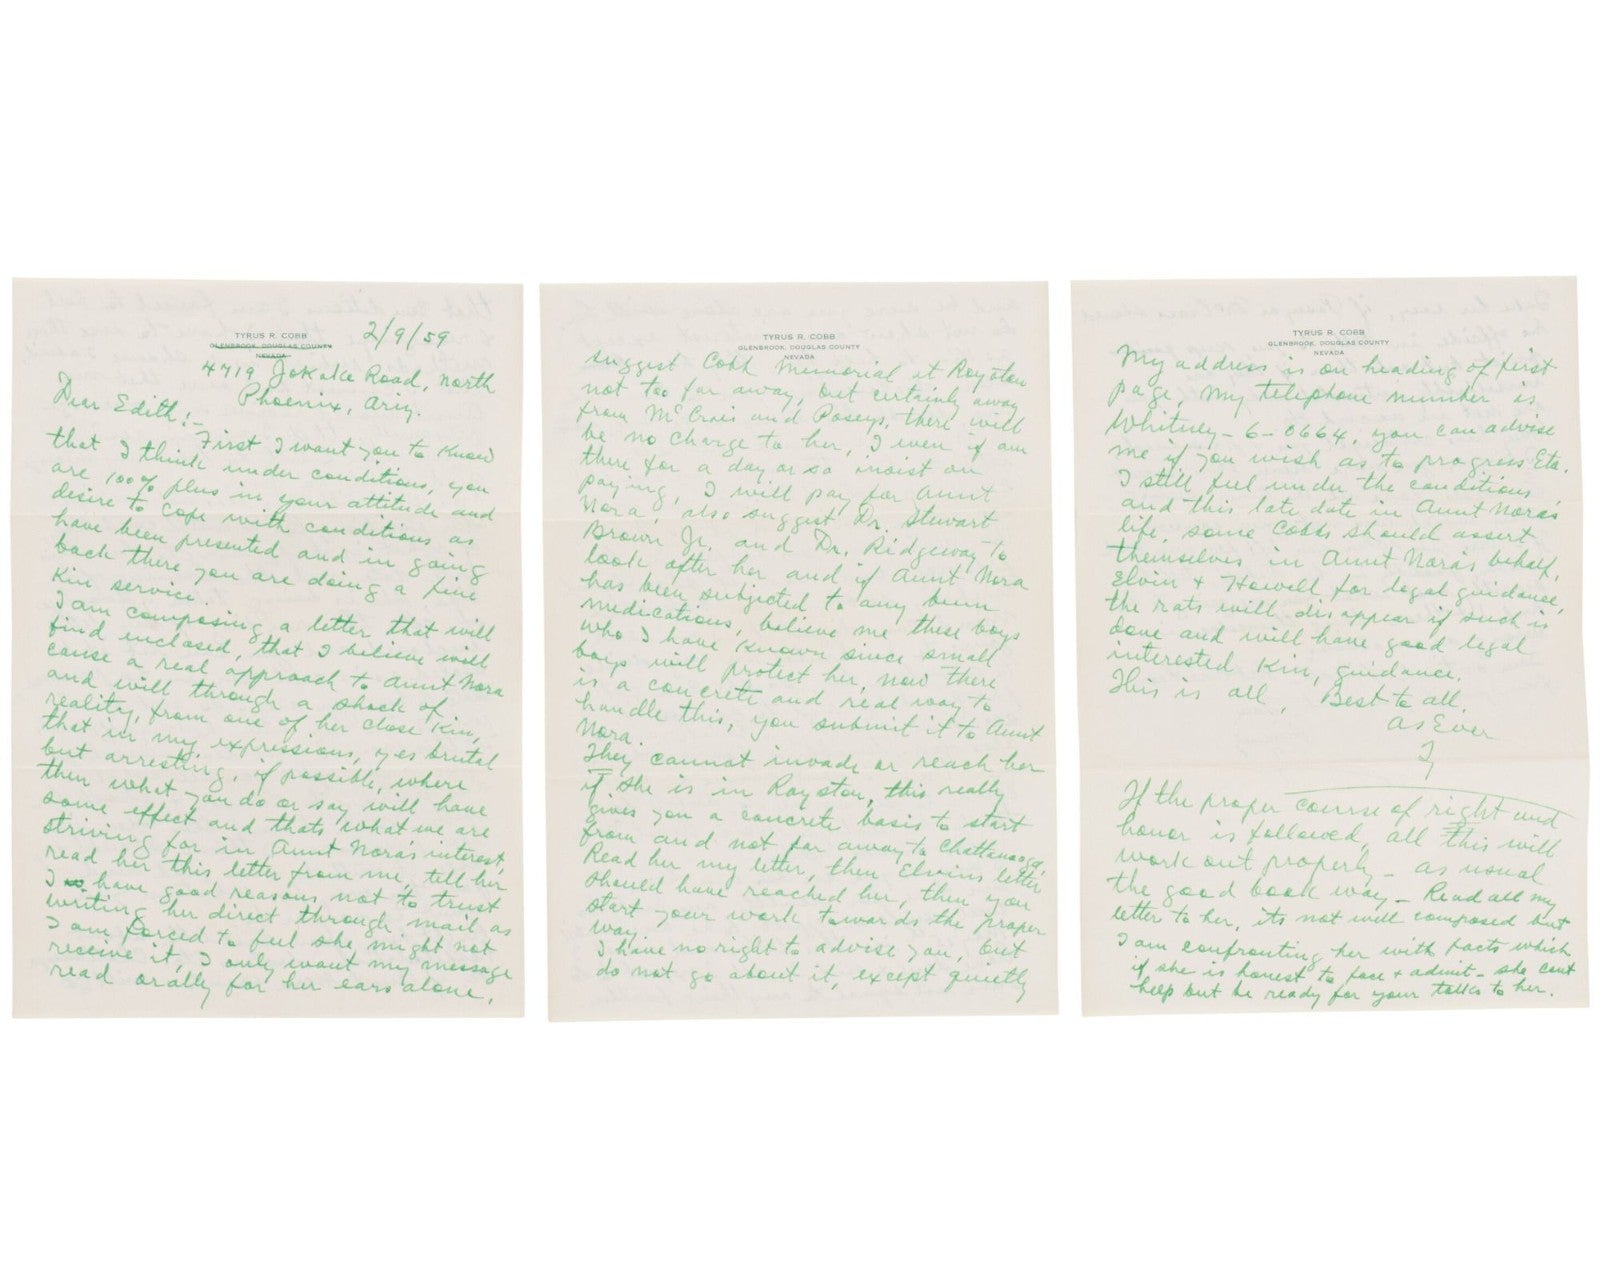 TYRUS R. COBB
GLENBROOK, DOUGLAS COUNTY
NEVADA
2/9/59
4719 Jokake Road, North
Phoenix, Ariz.
Dear Edith:-
First I want you to Know
that I think under conditions, you
are 100% plus in your attitude and
desire to cope with conditions as
have been presented and in going
back there you are doing a fine
Kin service.
I am composing a letter that will
find inclosed, that I believe will
cause a real approach to Aunt Nora
and will through a shock of
reality, from one of her close Kin,
that in my expressions, yes brutal
but arresting, if possible, where
then what you do or say will have
some effect and thats what we are
striving for in Aunt Nora's interest,
read her this letter from me, tell her
I have good reasons not to trust
writing her direct through mail as
I am forced to feel she might not
receive it, I only want my message
read orally for her ears alone,
TYRUS R. COBB
GLENBROOK, DOUGLAS COUNTY
NEVADA
suggest Cobb Memorial at Royston
not too far away, but certainly away
from McCrais and Poseys, there will
be no charge to her, I even if am
there for a day or so insist on
paying, I will pay for Aunt
Nora, also suggest Dr. Stewart
Brown Jr. and Dr. Ridgeway to
look after her and if Aunt Nora
has been subjected to any bum
medications, believe me these boys
who I have Known since small
boys will protect her, now there
is a concrete and real way to
handle this, you submit it to Aunt
Nora.
They cannot invade or reach her
if she is in Royston, this really
gives you a concrete basis to start
from and not far away to Chattanooga,
Read her my letter, then Elvins letter
should have reached her, then you
start your work towards the proper
way.
I have no right to advise you, but
do not go about it, except quietly
TYRUS R. COBB
GLENBROOK, DOUGLAS COUNTY
NEVADA
My address is on heading of first
page, my telephone number is
Whitney-6-0664, you can advise
me if you wish as to progress Etc.
I still feel under the conditions
and this late date in Aunt Nora's
life, some Cobbs should assert
themselves in Aunt Nora's behalf,
Elvin + Howell for legal guidance,
the rats will disappear if such is
done and will have good legal
interested Kin, guidance.
This is all, Best to all.
As Ever
Ty
If the proper course of right and
honor is followed, all this will
work out properly - as usual
the good book way - Read all my
letter to her, its not well composed but
I am confronting her with facts which
if she is honest to face + admit - she cant
help but be ready for your talks to her.